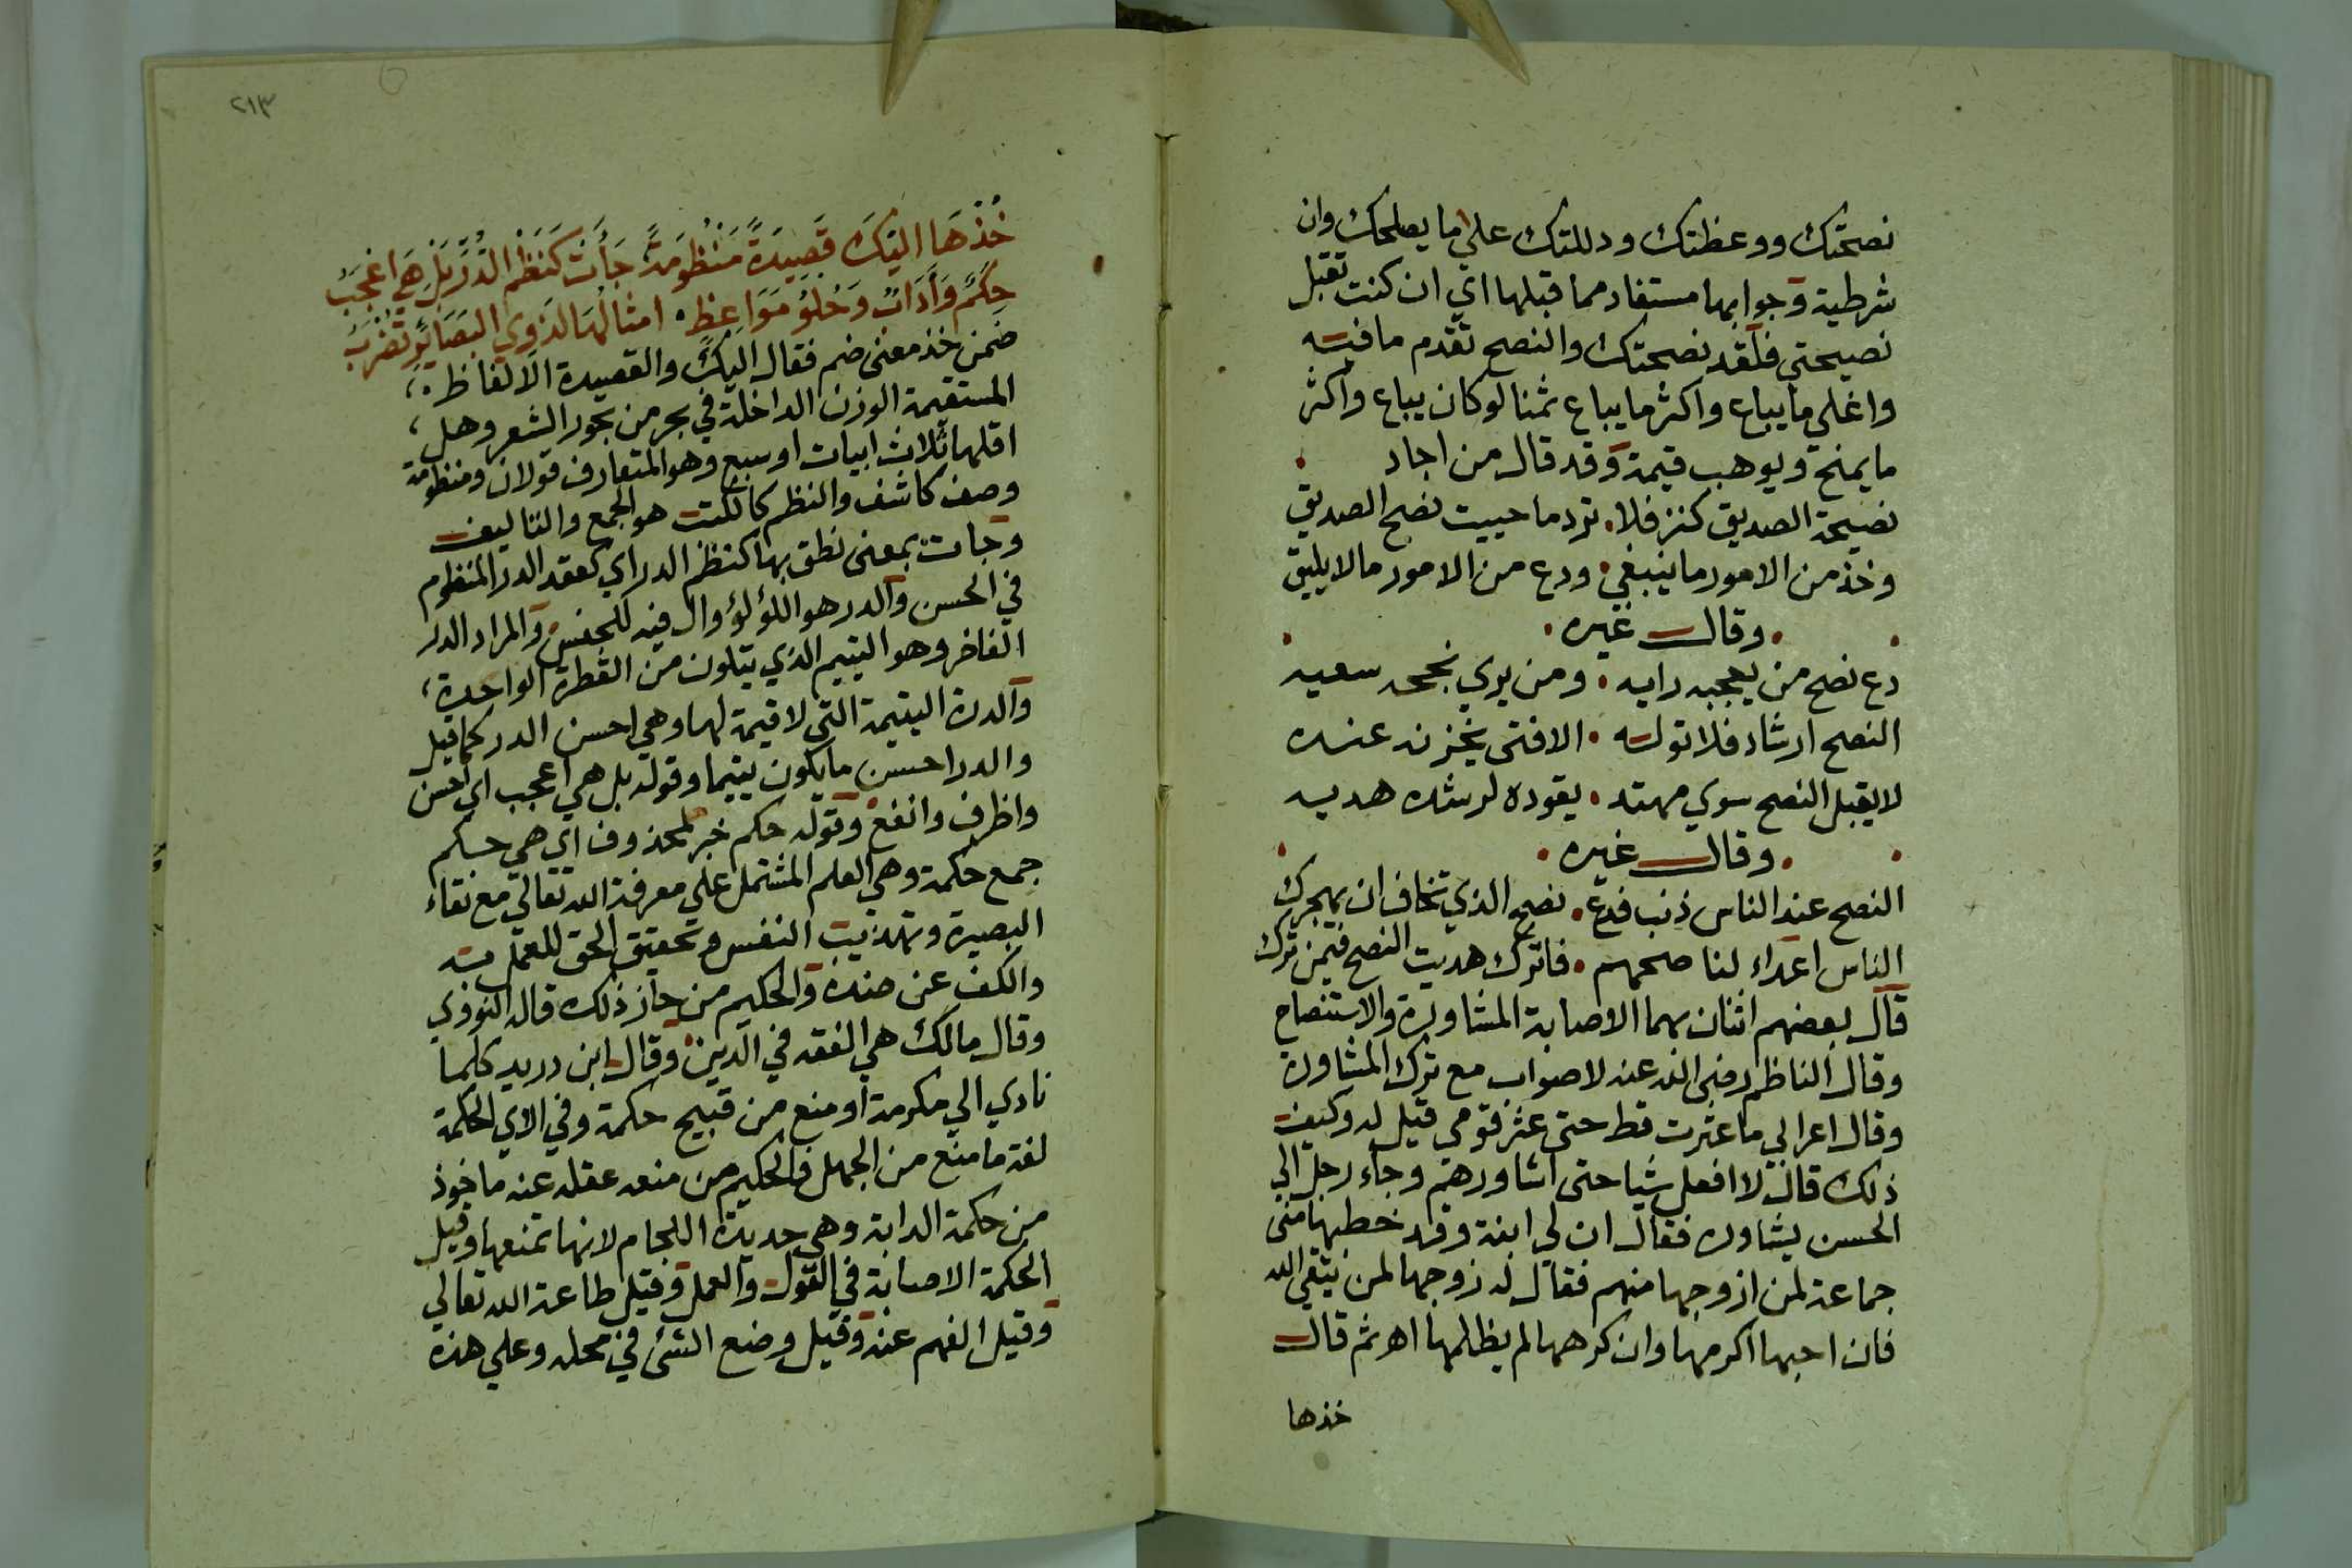 نصحتك ووعظتك ودللتك علي ما يصلحك وان
شرطية وجوابها مستفاد مما قبلها اي ان كنت تقبل
نصيحتي فلقد نصحتك والنصح تقدم ما فيه
واغلي ما يباع واكثر ما يباع ثمنا لوكان يباع واكثر
ما يمنح ويوهب قيمة وقد قال من اجاد
نصيحة الصديق كنز فلا . ترد ما حييت نصح الصديق
وخذ من الامور ما ينبغي . ودع من الامور ما لا يليق
. وقال غيره .
دع نصح من يعجبه رايه . ومن يري نجحه سعيه
النصح ارشاد فلا توله . الا فتى يحزن عنده
لا يقبل النصح سوي مهتد . يقوده لرشده هديه
. وقال غيره .
النصح عند الناس ذنب فدع . نصح الذي تخاف ان يهجرك
الناس اعداء لنا صحهم . فاترك هديت النصح فيمن ترك
قال بعضهم اثنان بهما الاصابة المشاورة والاستنصاح
وقال الناظم رضي الله عنه لا صواب مع ترك المشاورة
وقال اعرابي ما عثرت قط حتى عثر قومي قيل له وكيف
ذلك قال لا افعل شيا حتى اشاورهم وجاء رجل الي
الحسن يشاوره فقال ان لي ابنة وقد خطبها مني
جماعة لمن ازوجها منهم فقال له زوجها لمن يتقي الله
فان احبها اكرمها وان كرهها لم يظلمها اهـ ثم قال
خذها
٢١٣
خُذْهَا اليْكَ قَصِيدَةً مَنْظُومَةً جَأَتْ كَنَظْمِ الدُّرِّ بَلْ هِيَ اعْجَبُ
حِكَمٌ وَآدَابٌ وَحُلْوُ مَوَاعِظٍ . امثالُهَا لذوي البَصَايِرِ تُضْرَبُ
ضمن خذ معنى ضم فقال اليك والقصيدة الالفاظ .،
المستقيمة الوزن الداخلة في بحر من بحور الشعر وهل،
اقلها ثلاث ابيات او سبع وهو المتعارف قولان ومنظومة
وصف كاشف والنظم كالكتب هو الجمع والتاليف
وجات بمعنى نطق بها كنظم الدر اي كعقد الدر المنظوم
في الحسن والدر هو اللؤلؤ وال فيه للجنس والمراد الدر
الفاخر وهو اليتيم الذي يتلون من القطرة الواحدة،
والدرة اليتيمة التي لا قيمة لها وهي احسن الدر كما قيل
والدر احسن ما يكون يتيما وقوله بل هي اعجب اي احسن
واظرف وانفع وقوله حكم خبر لمحذوف اي هي حكم
جمع حكمة وهي العلم المشتمل علي معرفة الله تعالي مع نقاء
البصيرة وتهذيب النفس وتحقيق الحق للعمل به
والكف عن ضده والحكيم من حاز ذلك قاله النووي
وقال مالك هي الفقه في الدين وقال ابن دريد كلما
نادي الي مكرمة او منع من قبيح حكمة وفي الاي الحكمة
لغة ما منع من الجهل فالحكيم من منعه عقله عنه ماخوذ
من حكمة الدابة وهي حديدة اللجام لانها تمنعها وقيل
الحكمة الاصابة في القول والعمل وقيل طاعة الله تعالي
وقيل الفهم عنه وقيل وضع الشئ في محله وعلي هذه